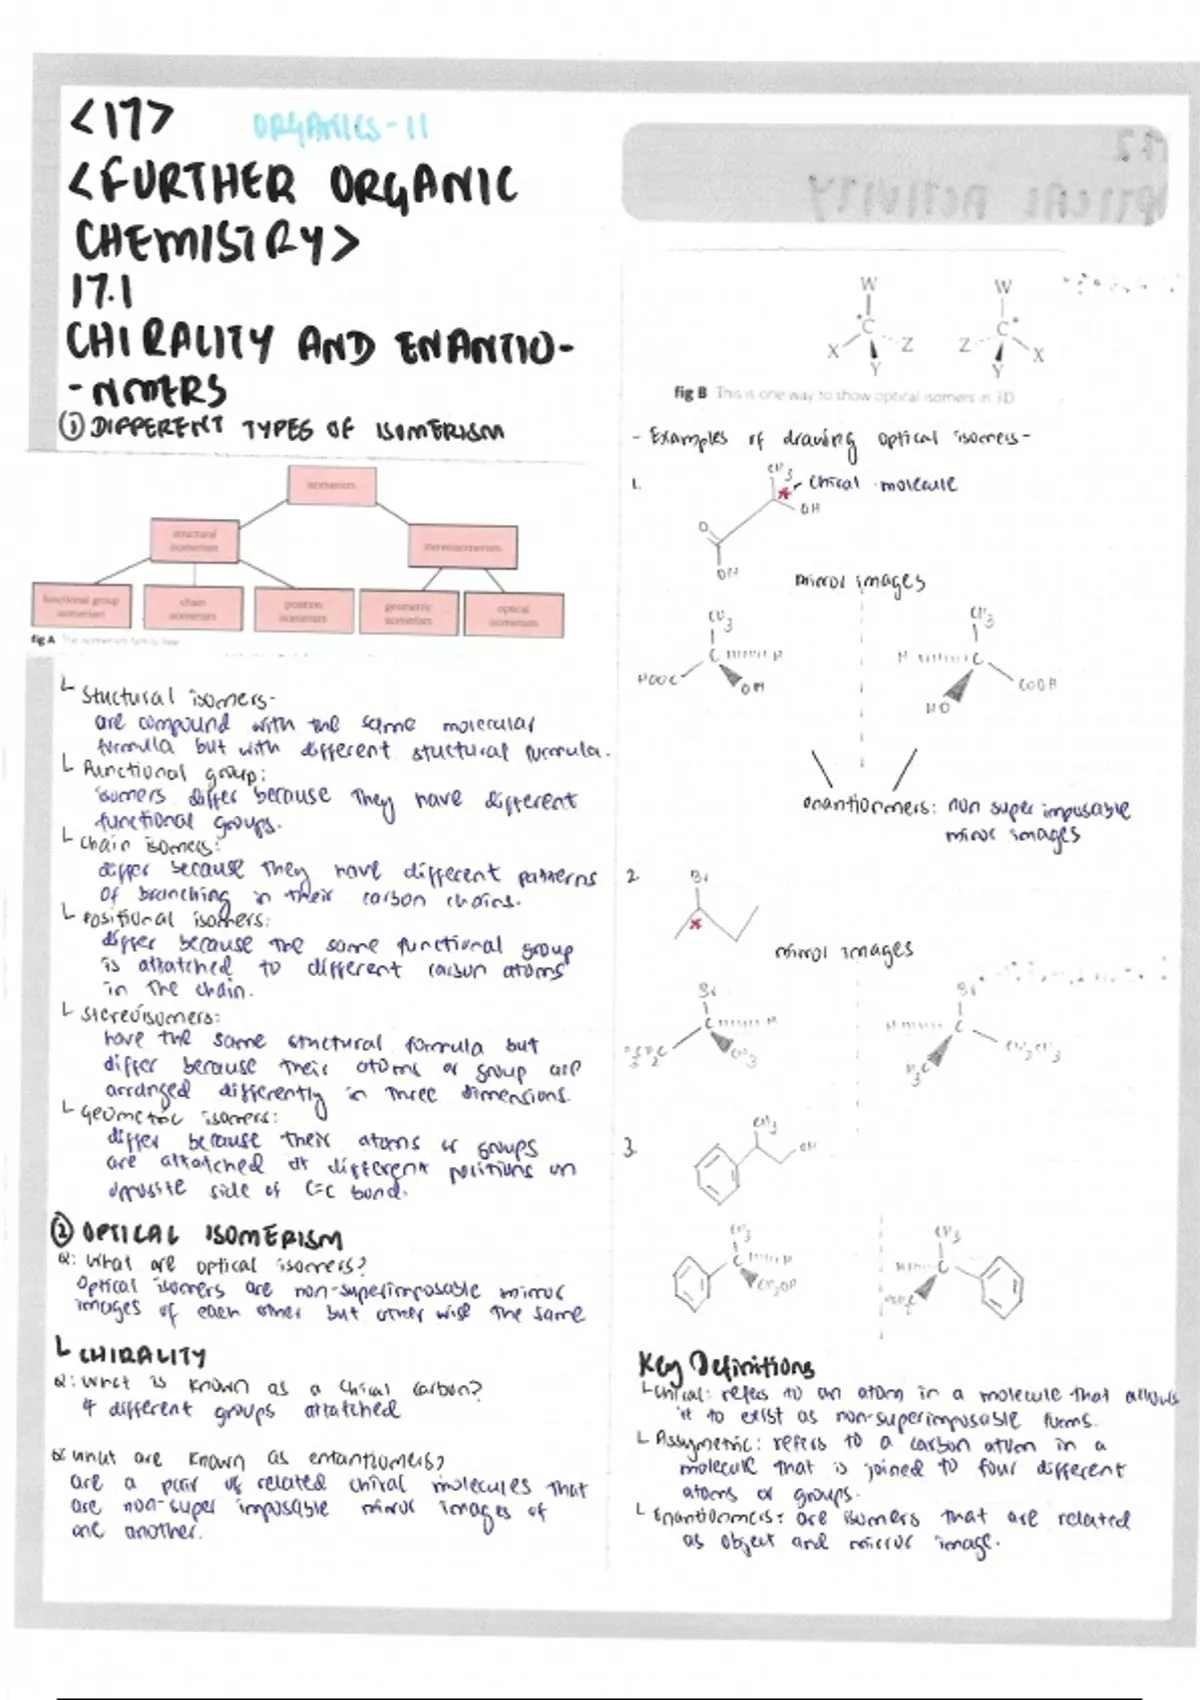 <17>
ORGANICS-11
<FURTHER ORGANIC
CHEMISTRY>
17.1
CHIRALITY AND ENANTIO-
-NMERS
① DIFFERENT TYPES OF ISOMERISM
isomerism
structural
isomerism
stereoisomerism
functional group
isomerism
chain
isomerism
position
isomerism
geometric
isomerism
optical
isomerism
fig A The isomerism family tree
Stuctural isomers-
are compound with the same molecular
formula but with different stuctural formula.
Functional group:
isomers differ because they have different
functional groups.
Chain isomers:
differ because they have different patterns
of branching in their carbon chains.
Positional isomers:
differ because the same functional group
is attatched to different carbon atoms
in the chain.
Stereoisomers:
have the same structural formula but
differ because their atoms or group are
arranged differently in three dimensions.
Geometric isomers:
differ because their atoms or groups
are attatched at different positions on
opposite side of C=C bond.
② OPTICAL ISOMERISM
Q: What are optical isomers?
Optical isomers are non-superimposable mirror
images of each other but other wise the same
CHIRALITY
Q: What is known as a chiral carbon?
4 different groups attatched
Q: What are known as entantiomers?
are a pair of related chiral molecules that
are non-super imposable mirror images of
one another.
17.2
OPTICAL ACTIVITY
W
*C
X
Z
Y
W
C*
Z
X
Y
fig B This is one way to show optical isomers in 3D
- Examples of drawing optical isomers-
1.
CH3
chiral molecule
OH
O
OH
mirror images
CH3
C
H
HOOC
OH
CH3
H
C
COOH
HO
enantionmers: non super imposable
mirror images
2.
Br
mirror images
Br
C
H
CH3CH2
CH3
Br
H
C
CH2CH3
H3C
3.
CH3
OH
CH3
C
H
CH2OH
CH3
H
C
Key Definitions
Chiral: refers to an atom in a molecule that allows
it to exist as non-superimposable forms.
Assymetric: refers to a carbon atom in a
molecule that is joined to four different
atoms or groups.
Enantionmers: are isomers that are related
as object and mirror image.